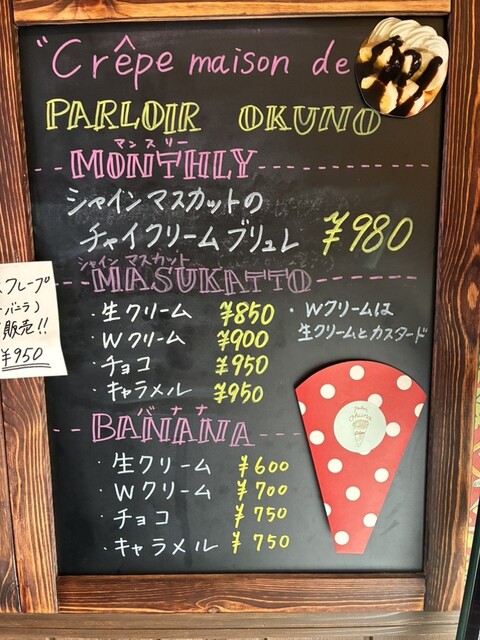 "Crêpe maison de
PARLOIR OKUNO
マンスリー
MONTHLY
シャインマスカットの
チャイクリームブリュレ ¥980
シャインマスカット
MASUKATTO
・生クリーム ¥850
・Wクリーム ¥900
・チョコ ¥950
・キャラメル ¥950
・Wクリームは
生クリームとカスタード
バナナ
BANANA
・生クリーム ¥600
・Wクリーム ¥700
・チョコ ¥750
・キャラメル ¥750
クレープ
バニラ)
販売!!
¥950
okuno